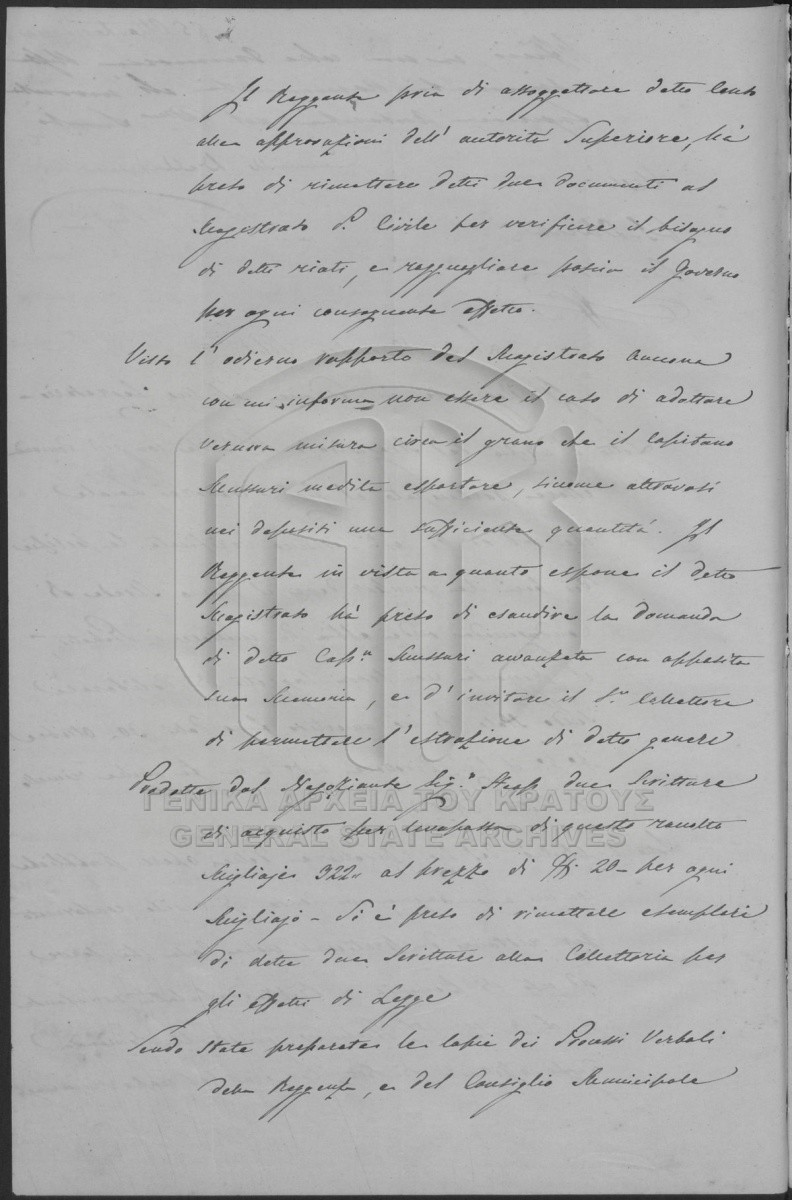 Il Reggente pria di assoggettare detto Conto
alla approvazioni dell' autorità Superiore, hà
preso di rimettere detti due documenti al
Magistrato P. Civile per verificare il bisogno
di detti , e ragguagliare poscia il Governo
per ogni conseguente effetto.
Visto l' odierno rapporto del Magistrato Annona
con cui informa non essere il caso di adottare
veruna misura circa il grano che il Capitano
Mussuri medita esportare, sicome attrovasi
nei depositi una sufficiente quantità. Il
Reggente in vista a quanto espone il detto
Magistrato hà preso di esaudire la domanda
di detto Capn. Mussuri avanzata con apposita
sua Memoria, e d' invitare il Sr. Collettore
di permettere l' estrazione di detto genere
ΓΕΝΙΚΑ ΑΡΧΕΙΑ ΤΟΥ ΚΡΑΤΟΥΣ
GENERAL STATE ARCHIVES
Prodotte dal Negoziante Sigr. due Scritture
di acquisto per uvapassa di questo racolto
Migliaje 322 al prezzo di 20 per ogni
Migliajo - Si è preso di rimettere esemplari
di dette due Scritture alla Collettoria per
gli effetti di Legge
Sendo state preparate le copie dei Processi Verbali
della Reggenza, e del Consiglio Municipale